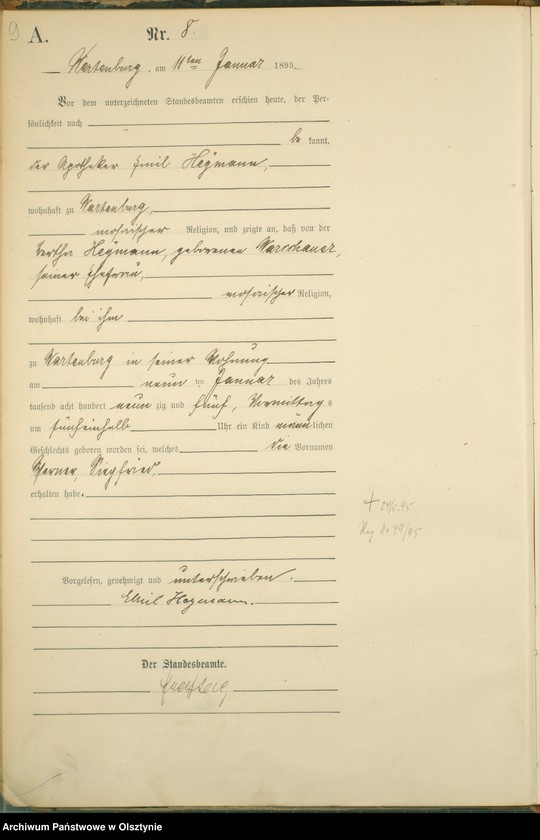 9
A.
Nr. 8.
Wartenburg, am 11ten Januar 1895.
Vor dem unterzeichneten Standesbeamten erschien heute, der Per-
sönlichkeit nach
be kannt,
der Apotheker Emil Heymann,
wohnhaft zu Wartenburg,
mosaischer Religion, und zeigte an, daß von der
Bertha Heymann, geborenen Warschauer,
seiner Ehefrau,
mosaischer Religion,
wohnhaft bei ihm
zu Wartenburg in seiner Wohnung
am neun ten Januar des Jahres
tausend acht hundert neun zig und fünf, Vormittag s
um fünfeinhalb Uhr ein Kind männ lichen
Geschlechts geboren worden sei, welches die Vornamen
Werner, Siegfried,
erhalten habe.
Vorgelesen, genehmigt und unterschrieben.
Emil Heymann.
Der Standesbeamte.
Archiwum Państwowe w Olsztynie